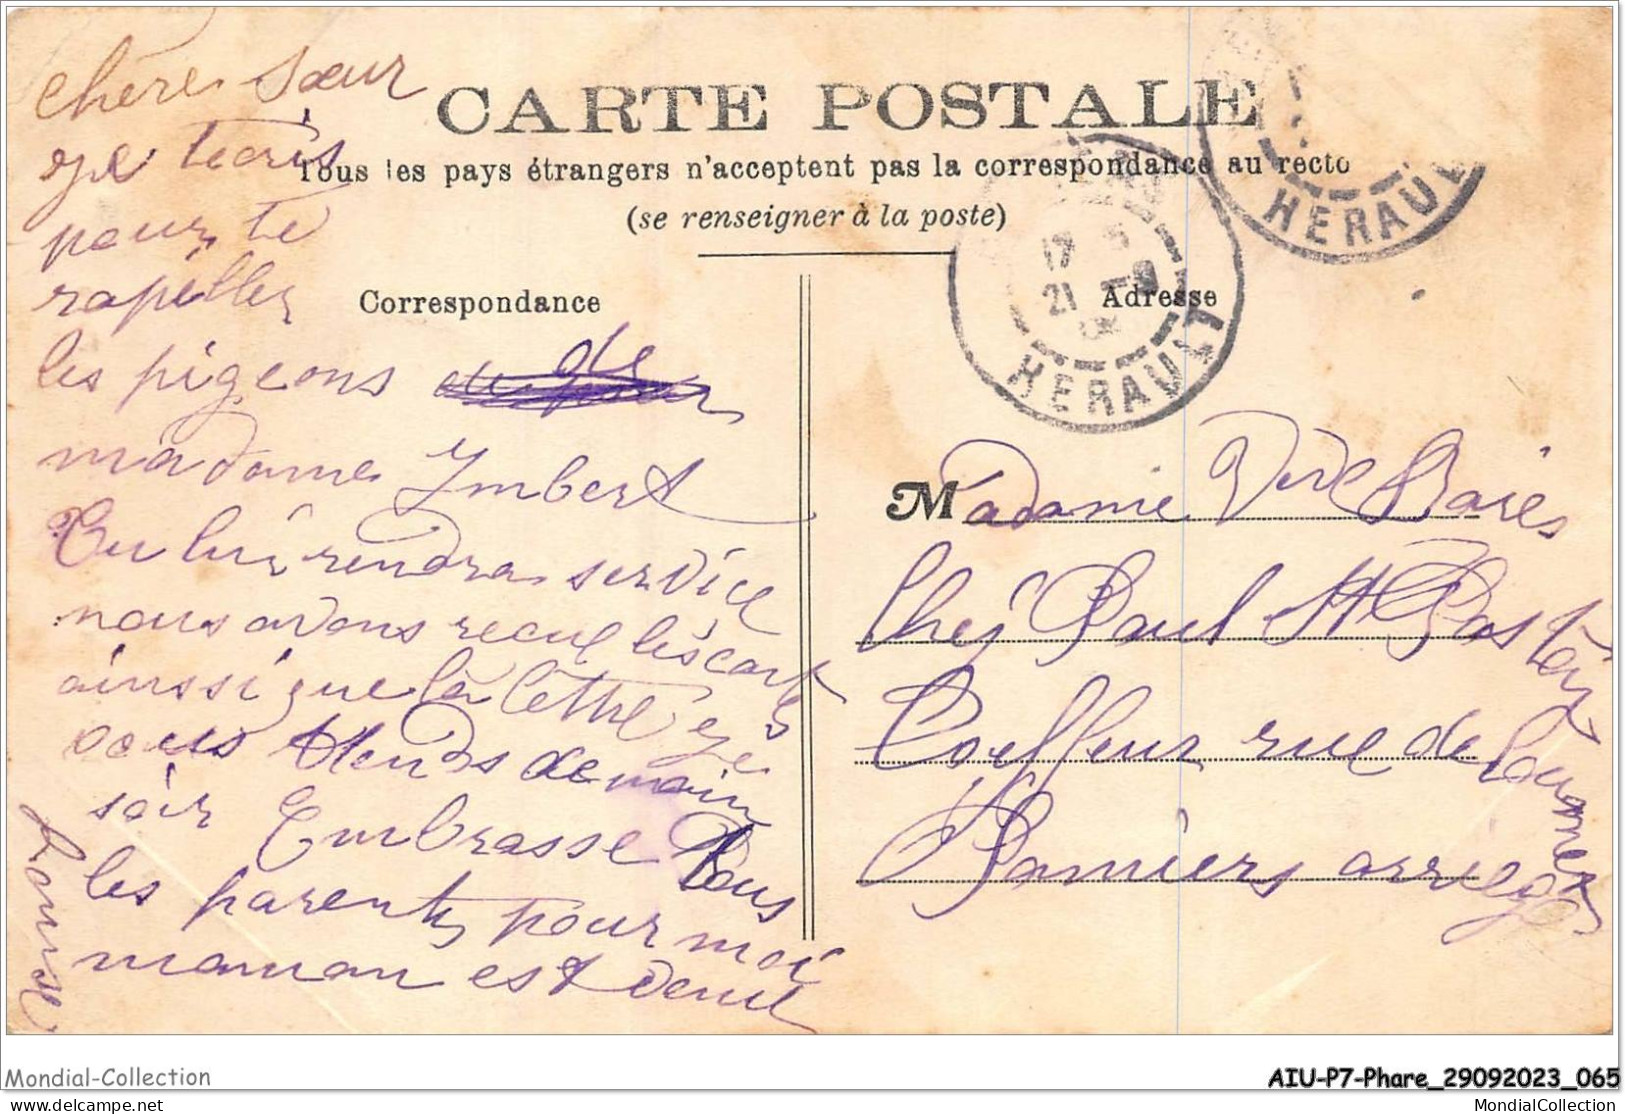 CARTE POSTALE
Tous les pays étrangers n'acceptent pas la correspondance au recto
(se renseigner à la poste)
Correspondance
Adresse
HERAULT
17
21
HERAULT
chère sœur
je t'ecris
pour te
rapeller
les pigeons de
madame Imbert
Tu lui rendra service
nous avons recue les cartes
ainssi que la lettre je
vous attends demain
soir Embrasse tous
les parents pour moi
maman est
Louise
Madame Vve Baies
Chez Paul
Coiffeur rue de
Pamiers arriege
Mondial-Collection
AIU-P7-Phare_29092023_065
delcampe.net
MondialCollection